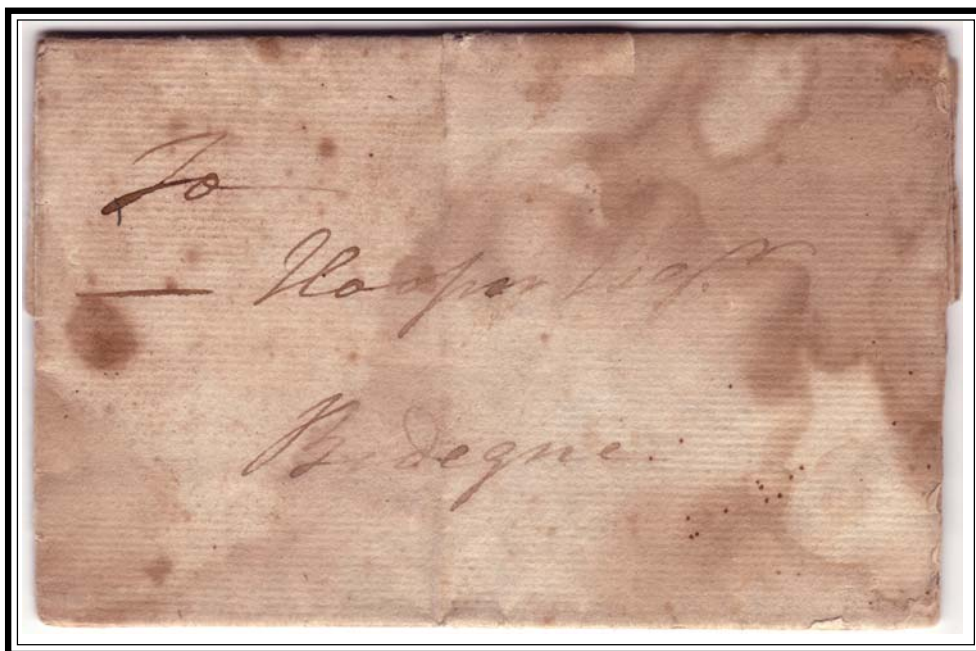 To
— Hooper Esqr.
Bodegne.